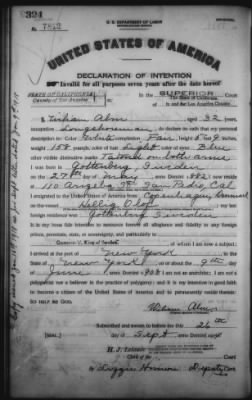 324
No. 7829
U. S. DEPARTMENT OF LABOR
UNITED STATES OF AMERICA
DECLARATION OF INTENTION
Invalid for all purposes seven years after the date hereof
STATE OF CALIFORNIA
County of Los Angeles ss:
In the SUPERIOR Court
The State of California
in and for Los Angeles County
I, William Alm, aged 32 years,
occupation Longshoreman, do declare on oath that my personal
description is: Color White, complexion Fair, height 5 feet 9 inches,
weight 158 pounds, color of hair Light, color of eyes Blue
other visible distinctive marks Tattooed on both arms
I was born in Gottenberg Sweden
on the 27th day of, anno Domini 1882; I now reside
at 110 Angela St San Pedro, Cal.
I emigrated to the United States of America from Copenhagen Denmark
on the vessel Hellig Olav; my last
foreign residence was Gottenberg Sweden
It is my bona fide intention to renounce forever all allegiance and fidelity to any foreign
prince, potentate, state, or sovereignty, and particularly to
Gustav V, King of Sweden, of whom I am now a subject; I
arrived at the port of New York, in the
State of New York, on or about the 9th day
of June, anno Domini; I am not an anarchist; I am not a
polygamist nor a believer in the practice of polygamy; and it is my intention in good faith
to become a citizen of the United States of America and to permanently reside therein:
SO HELP ME GOD.
William Alm
Subscribed and sworn to before me this 26th
[SEAL.] day of Sept, anno Domini
H. J. Lelande
Clerk of the Court.
By, Deputy Clerk.